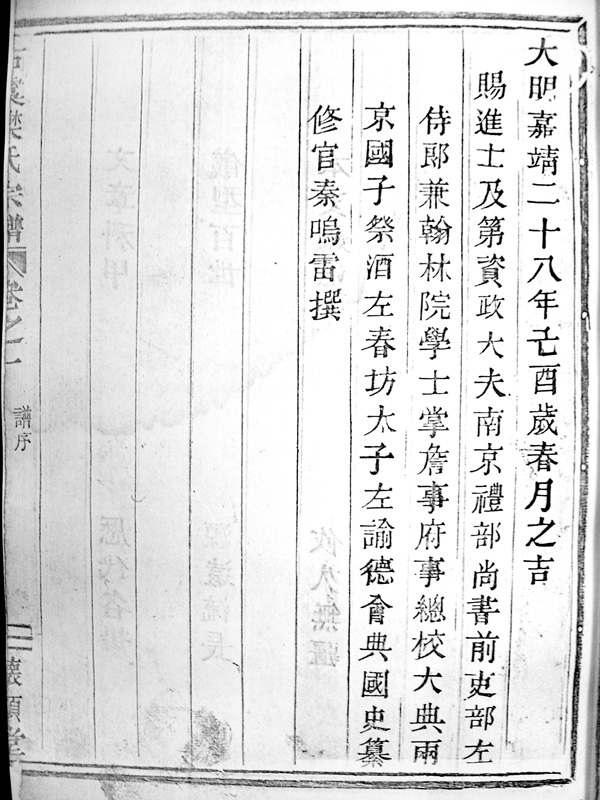 大明嘉靖二十八年乙酉歲春月之吉
賜進士及第資政大夫南京禮部尚書前吏部左
侍郎兼翰林院學士掌詹事府事總校大典兩
京國子祭酒左春坊太子左諭德會典國史纂
修官秦鳴雷撰
樊氏宗譜
卷之一
譜序
二